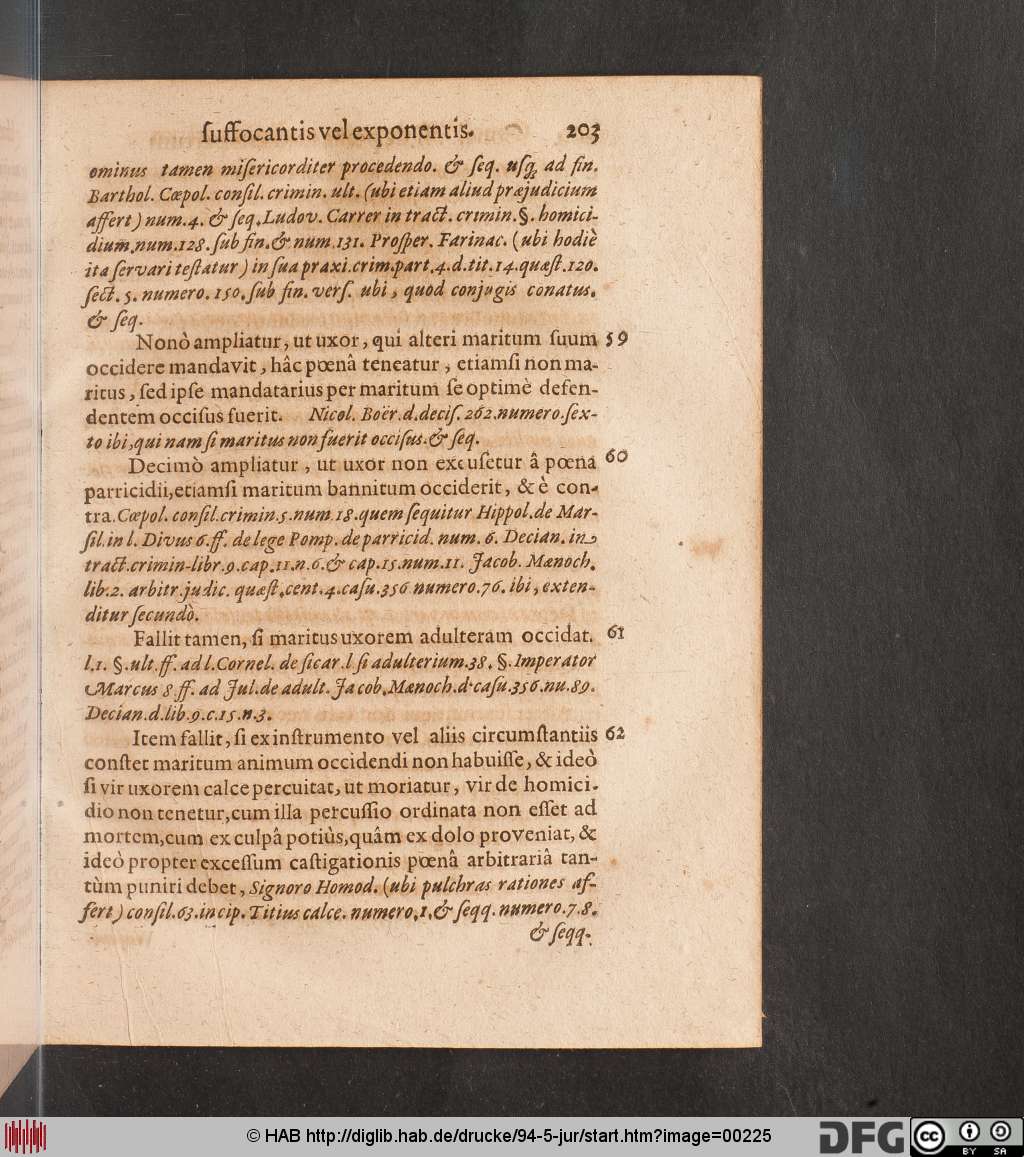 ſuffocantis vel exponentis. 203
ominus tamen miſericorditer procedendo. & ſeq. uſq; ad fin.
Barthol. Cœpol. conſil. crimin. ult. (ubi etiam aliud præjudicium
affert) num. 4. & ſeq. Ludov. Carrer in tract. crimin. §. homici-
dium. num. 128. ſub fin. & num. 131. Proſper. Farinac. (ubi hodiè
ita ſervari teſtatur) in ſua praxi. crim. part. 4. d. tit. 14. quæſt. 120.
ſect. 5. numero. 150. ſub fin. verſ. ubi, quod conjugis conatus.
& ſeq.
Nonò ampliatur, ut uxor, qui alteri maritum ſuum 59
occidere mandavit, hâc pœnâ teneatur, etiamſi non ma-
ritus, ſed ipſe mandatarius per maritum ſe optimè defen-
dentem occiſus fuerit. Nicol. Boër. d. deciſ. 262. numero. ſex-
to ibi, qui nam ſi maritus non fuerit occiſus. & ſeq.
Decimò ampliatur, ut uxor non excuſetur â pœna 60
parricidii, etiamſi maritum bannitum occiderit, & è con-
tra. Cœpol. conſil. crimin. 5. num. 18. quem ſequitur Hippol. de Mar-
ſil. in l. Divus 6. ff. de lege Pomp. de parricid. num. 6. Decian. in
tract. crimin-libr. 9. cap. 11. n. 6. & cap. 15. num. 11. Jacob. Mænoch.
lib. 2. arbitr. judic. quæſt. cent. 4. caſu. 356 numero. 76. ibi, exten-
ditur ſecundò.
Fallit tamen, ſi maritus uxorem adulteram occidat. 61
l. 1. §. ult. ff. ad l. Cornel. de ſicar. l. ſi adulterium. 38. §. Imperator
Marcus 8 ff. ad Jul. de adult. Jacob. Mænoch. d. caſu. 356. nu. 89.
Decian. d. lib. 9. c. 15. n. 3.
Item fallit, ſi ex inſtrumento vel aliis circumſtantiis 62
conſtet maritum animum occidendi non habuiſſe, & ideò
ſi vir uxorem calce percuitat, ut moriatur, vir de homici-
dio non tenetur, cum illa percuſſio ordinata non eſſet ad
mortem, cum ex culpâ potiùs, quâm ex dolo proveniat, &
ideò propter exceſſum caſtigationis pœnâ arbitrariâ tan-
tùm puniri debet, Signoro Homod. (ubi pulchras rationes af-
fert) conſil. 63. incip. Titius calce. numero. 1. & ſeqq. numero. 7. 8.
& ſeqq.
© HAB http://diglib.hab.de/drucke/94-5-jur/start.htm?image=00225
DFG
cc BY SA